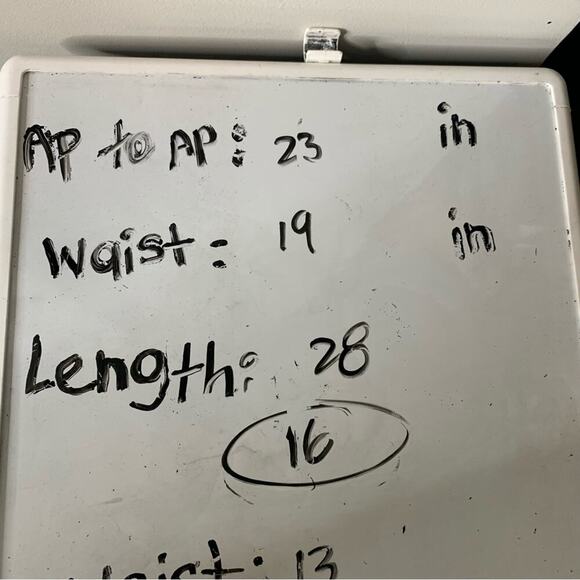 AP to AP: 23 in
Waist: 19 in
Length: 28
16
Waist: 13